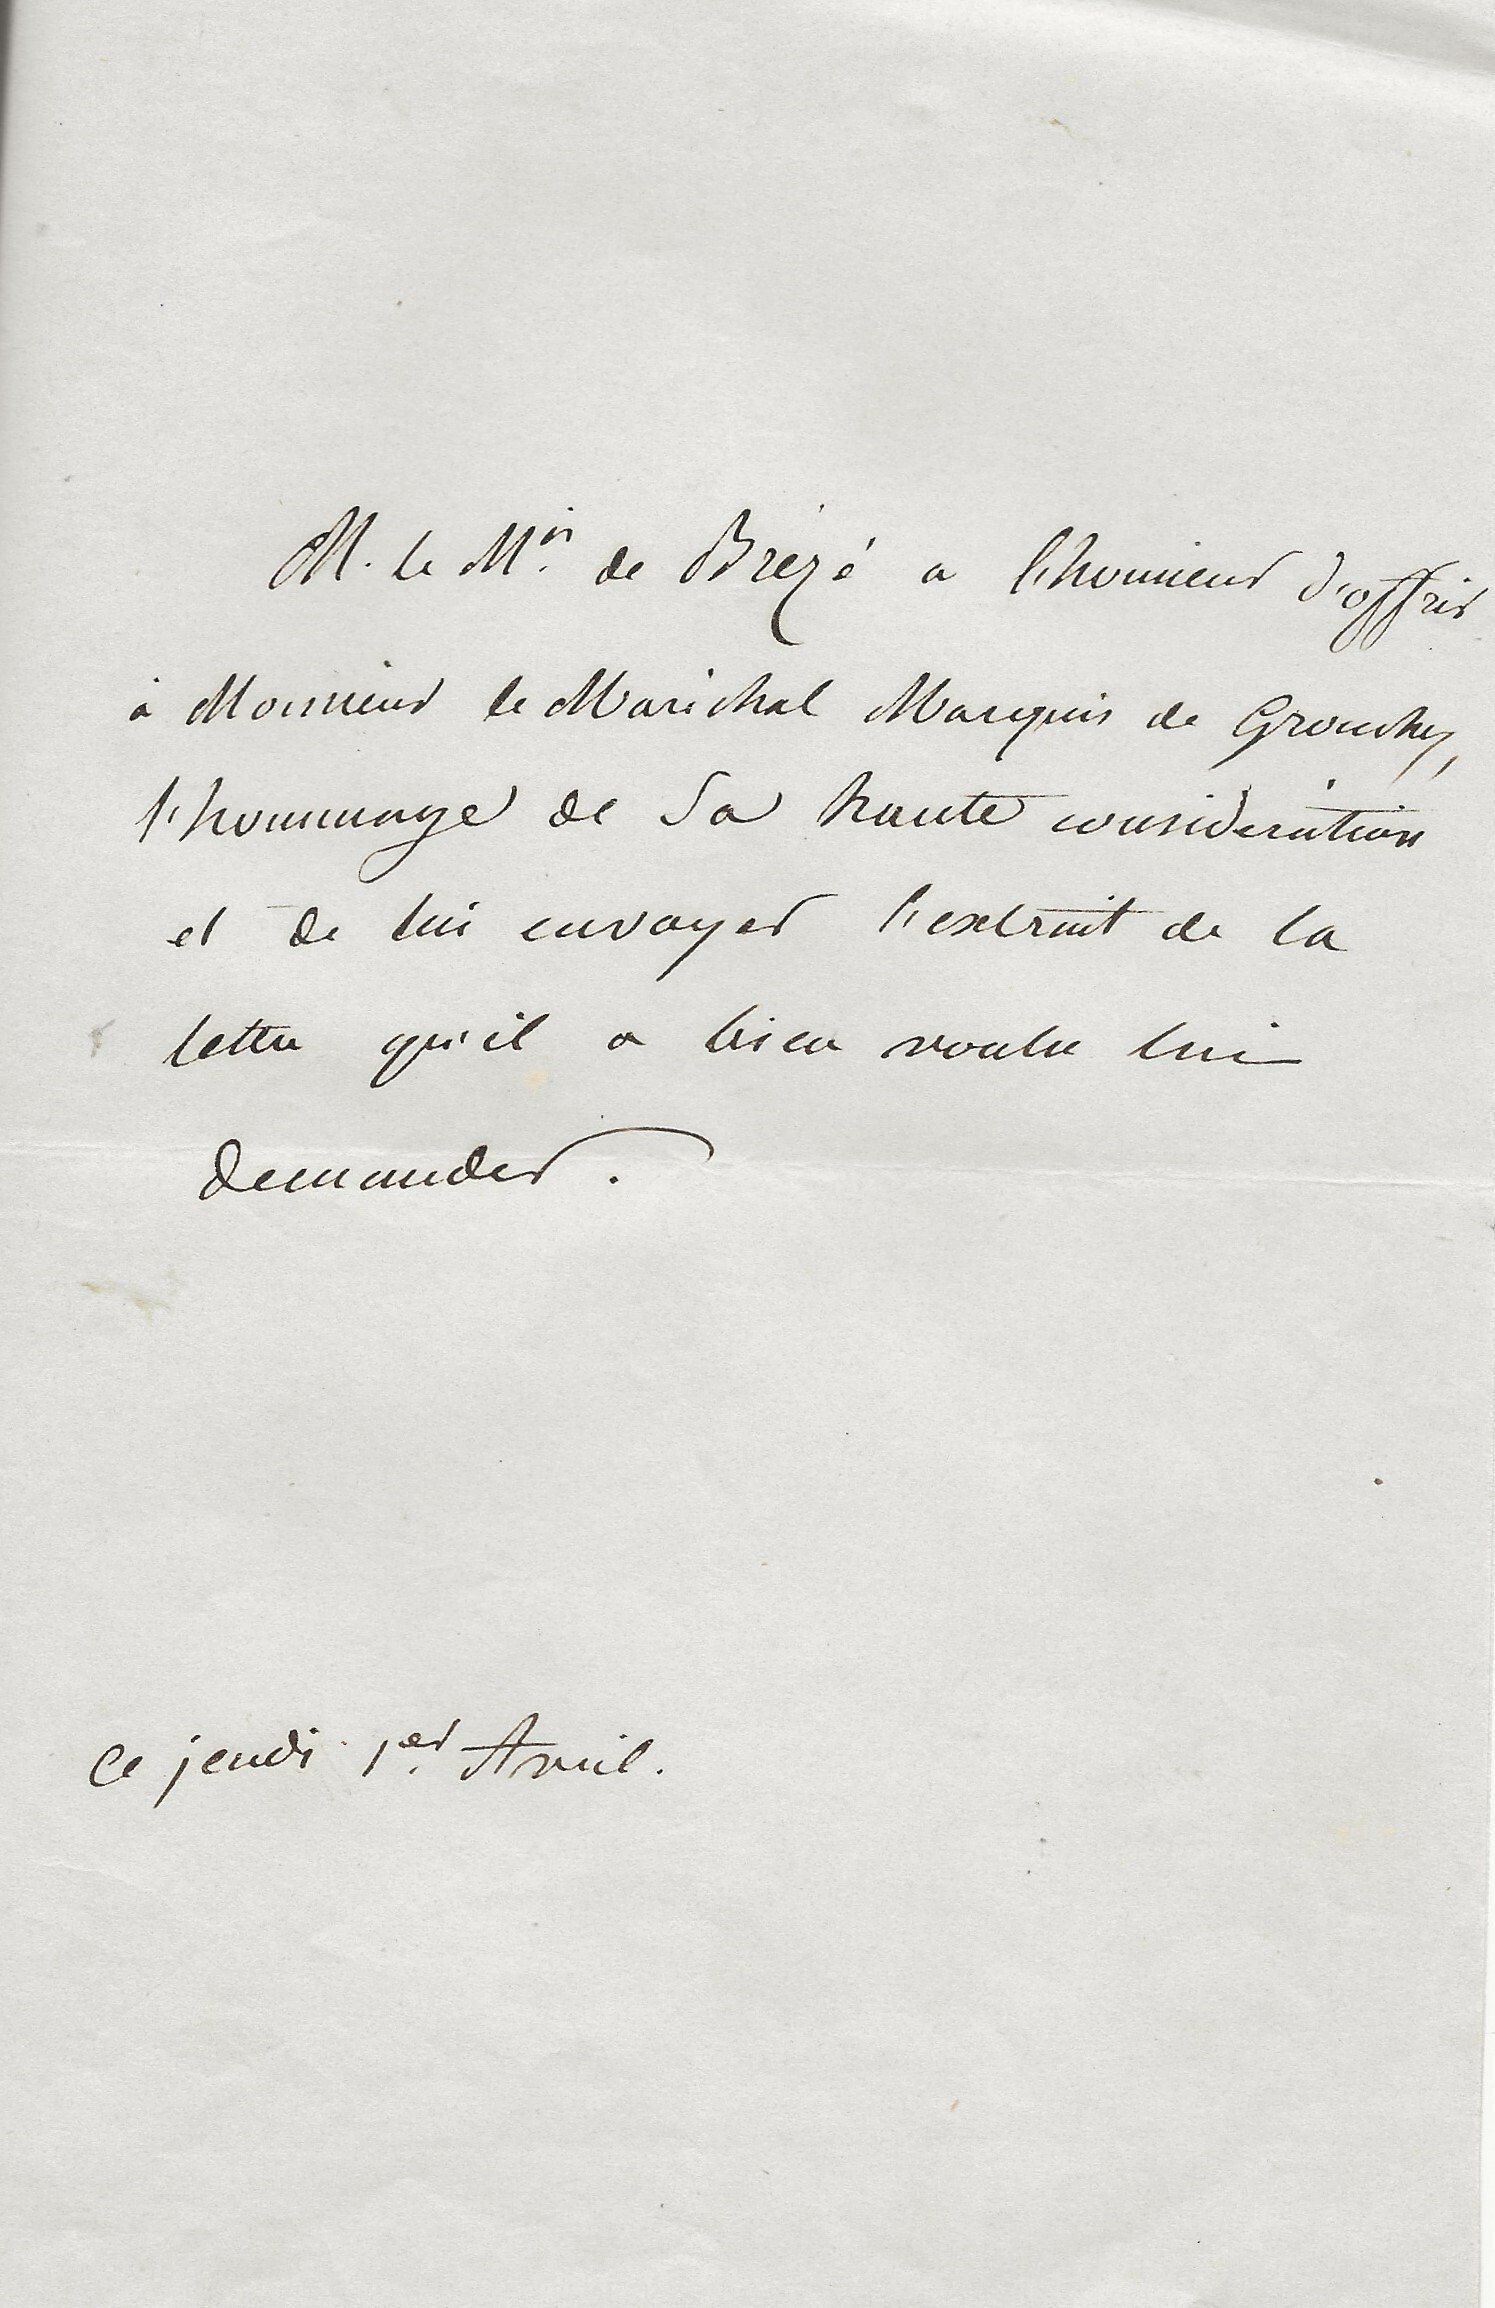 M. le M.is de Brézé a l'honneur d'offrir
à Monsieur le Maréchal Marquis de Grouchy,
l'hommage de sa haute considération
et de lui envoyer l'extrait de la
lettre qu'il a bien voulu lui
demander.
Ce jeudi 1.er Avril.